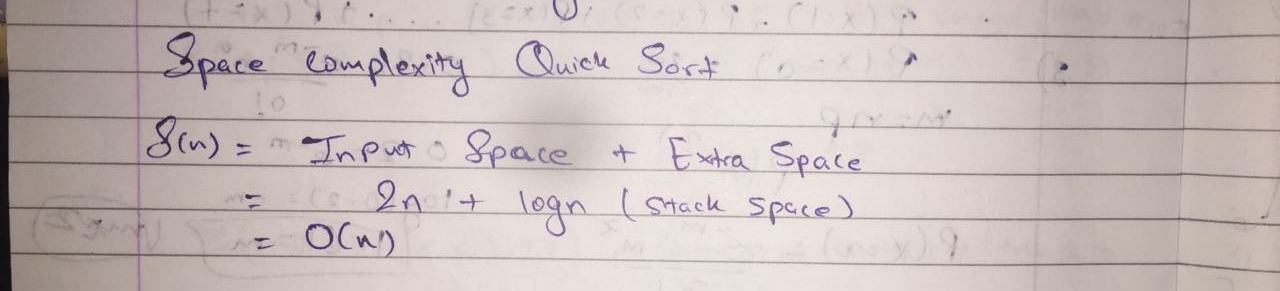 Space complexity Quick Sort
S(n) = Input Space + Extra Space
= 2n + logn (stack space)
= O(n)